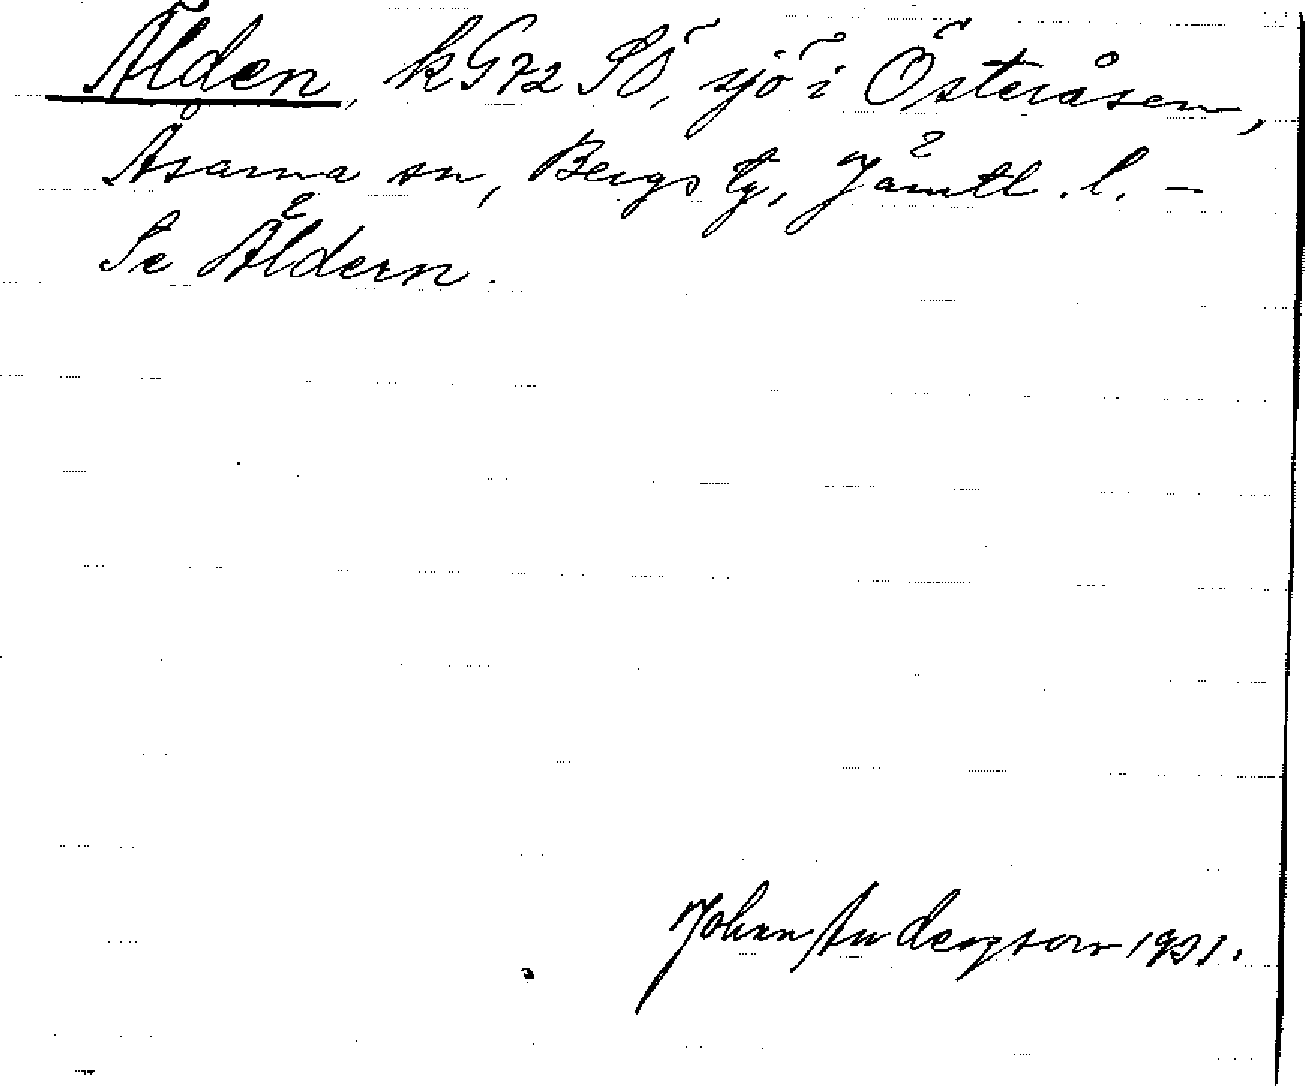 Älden, kG72 SÖ, sjö i Österåsen,
Åsarna sn, Bergs tg, Jämtl. l. –
Se Äldern.
Johan Andersson 1931.